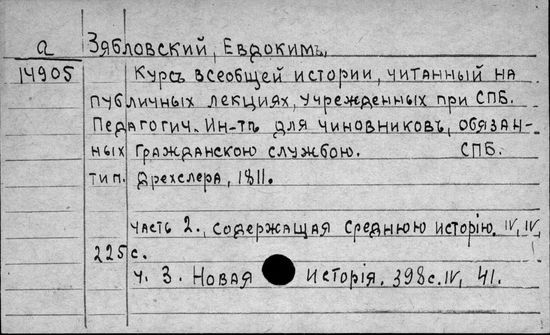 а Зябловский, Евдокимъ,
14905 Курсъ всеобщей истории, читанный на
публичных лекциях, учрежденных при СПБ.
Педагогич. Ин-тѣ для чиновниковъ, обязан-
ных гражданскою службою. СПБ.
тип. Дрехслера, 1811.
часть 2., содержащая среднюю исторiю. IV, IV,
225 с.
ч. 3. Новая исторiя. 398 с. IV, 41.